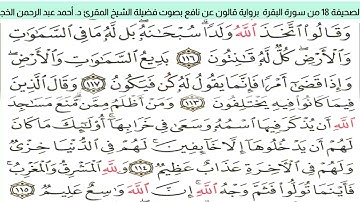 الصحيفة 18 من سورة البقرة برواية قالون عن نافع بصوت فضيلة الشيخ المقرئ د. أحمد عبد الرحمن الخ
وَقَالُوا اتَّخَذَ اللَّهُ وَلَدًا سُبْحَٰنَهُۥ بَل لَّهُۥ مَا فِي السَّمَٰوَٰتِ
وَالْأَرْضِ كُلٌّ لَّهُۥ قَٰنِتُونَ ١١٦ بَدِيعُ السَّمَٰوَٰتِ وَالْأَرْضِ
وَإِذَا قَضَىٰ أَمْرًا فَإِنَّمَا يَقُولُ لَهُۥ كُن فَيَكُونُ ١١٧ وَقَالَ الَّذِينَ
فِيمَا كَانُوا فِيهِ يَخْتَلِفُونَ ١١٣ وَمَنْ أَظْلَمُ مِمَّن مَّنَعَ مَسَٰجِدَ
اللَّهِ أَن يُذْكَرَ فِيهَا اسْمُهُۥ وَسَعَىٰ فِي خَرَابِهَا أُوْلَٰئِكَ مَا كَانَ
لَهُمْ أَن يَدْخُلُوهَا إِلَّا خَائِفِينَ لَهُمْ فِي الدُّنْيَا خِزْيٌ
وَلَهُمْ فِي الْآخِرَةِ عَذَابٌ عَظِيمٌ ١١٤ وَلِلَّهِ الْمَشْرِقُ وَالْمَغْرِبُ
فَأَيْنَمَا تُوَلُّوا فَثَمَّ وَجْهُ اللَّهِ إِنَّ اللَّهَ وَٰسِعٌ عَلِيمٌ ١١٥